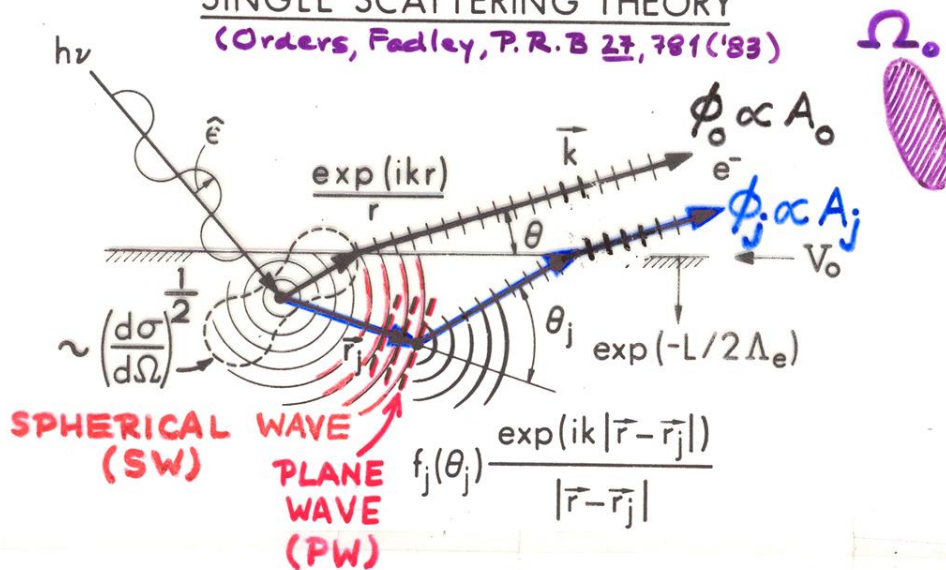 SINGLE SCATTERING THEORY
(Orders, Fadley, P.R.B 27, 781 ('83)
Ω₀
hν
ε̂
exp(ikr)
r
k⃗
ϕ₀ ∝ A₀
e⁻
θ
ϕⱼ ∝ Aⱼ
V₀
~ (dσ/dΩ)^½
r⃗ⱼ
θⱼ
exp(-L/2Λₑ)
SPHERICAL WAVE
(SW)
PLANE
WAVE
(PW)
fⱼ(θⱼ) exp(ik|r⃗-r⃗ⱼ|)
|r⃗-r⃗ⱼ|